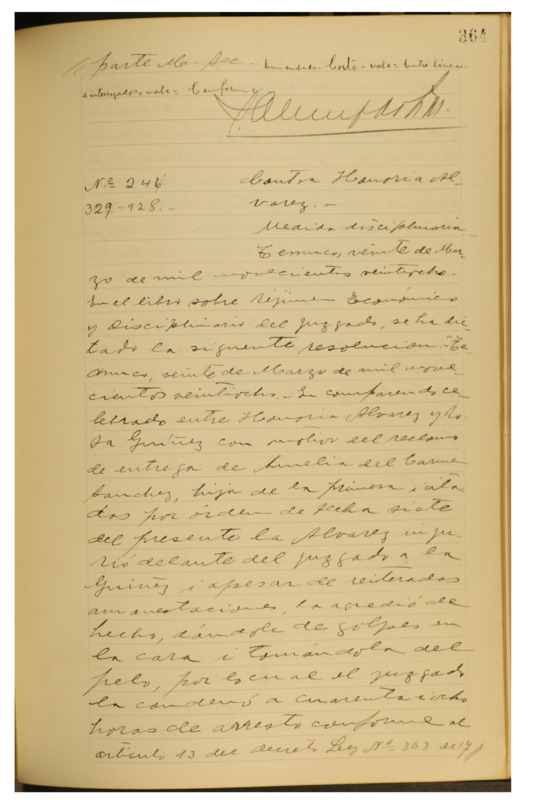 364
parte M. Sec - enmendado - Corte - vale = Entre líneas
enterregados = vale = Conforme
Nº 246
329-928.-
Contra Honoria Al-
varez.-
Medida disciplinaria
Temuco, veinte de Mar-
zo de mil novecientos veintiocho.-
En el libro sobre Réjimen Económico
y Disciplinario del juzgado, se ha dic-
tado la siguiente resolución.- "Te-
muco, veinte de Marzo de mil nove-
cientos veintiocho.- En comparendo ce-
lebrado entre Honoria Alvarez y Ro-
sa Guíñez con motivo del reclamo
de entrega de Amelia del Carmen
Sanchez, hija de la primera i cita-
das por órden de fecha siete
del presente la Alvarez inju-
rió delante del juzgado a la
Guíñez i apesar de reiteradas
amonestaciones, la agredió de
hecho, dándole de golpes en
la cara i tomándola del
pelo, por lo cual el juzgado
la condenó a cuarenta i ocho
horas de arresto conforme al
artículo 13 del Decreto Ley Nº 363 de 17